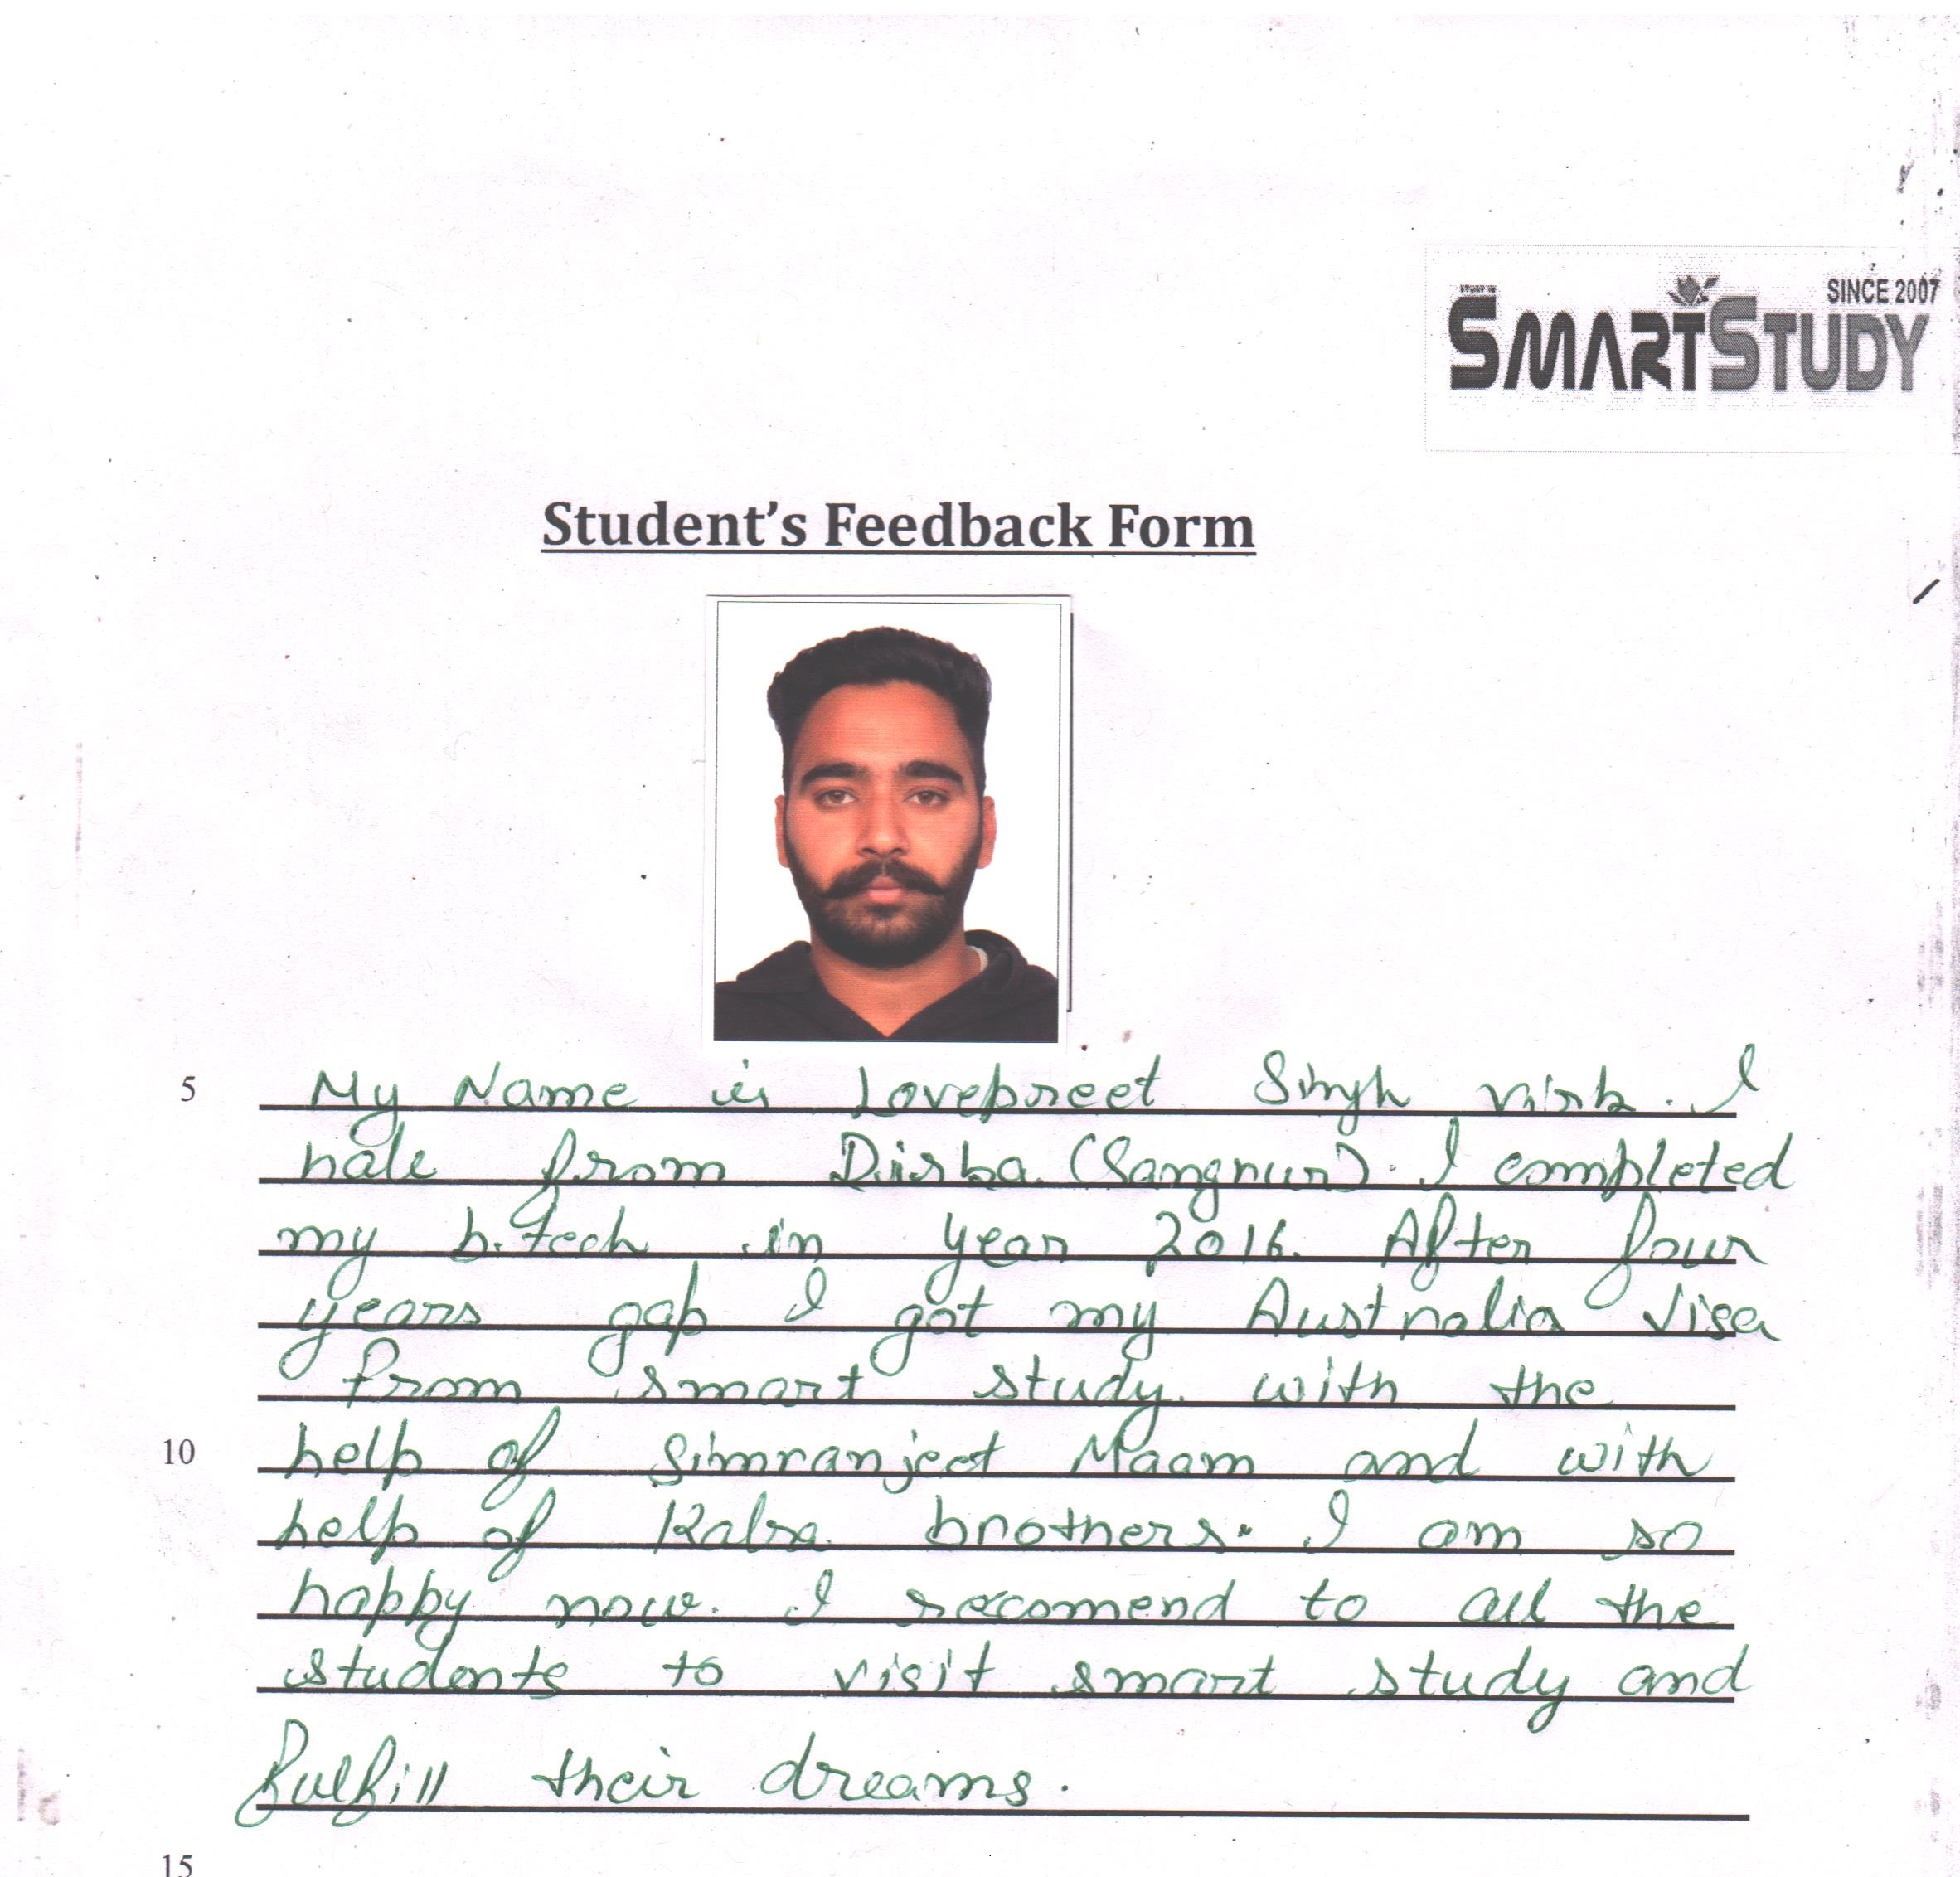 SINCE 2007
SMARTSTUDY
Student's Feedback Form
5 My Name is Lovepreet Singh Virk. I
hale from Dirba (Sangrur). I completed
my b.tech in year 2016. After four
years gap I got my Australia visa
from smart study. with the
10 help of Simranjeet Maam and with
help of Kalra brothers. I am so
happy now. I recomend to all the
students to visit smart study and
fulfill their dreams.
15